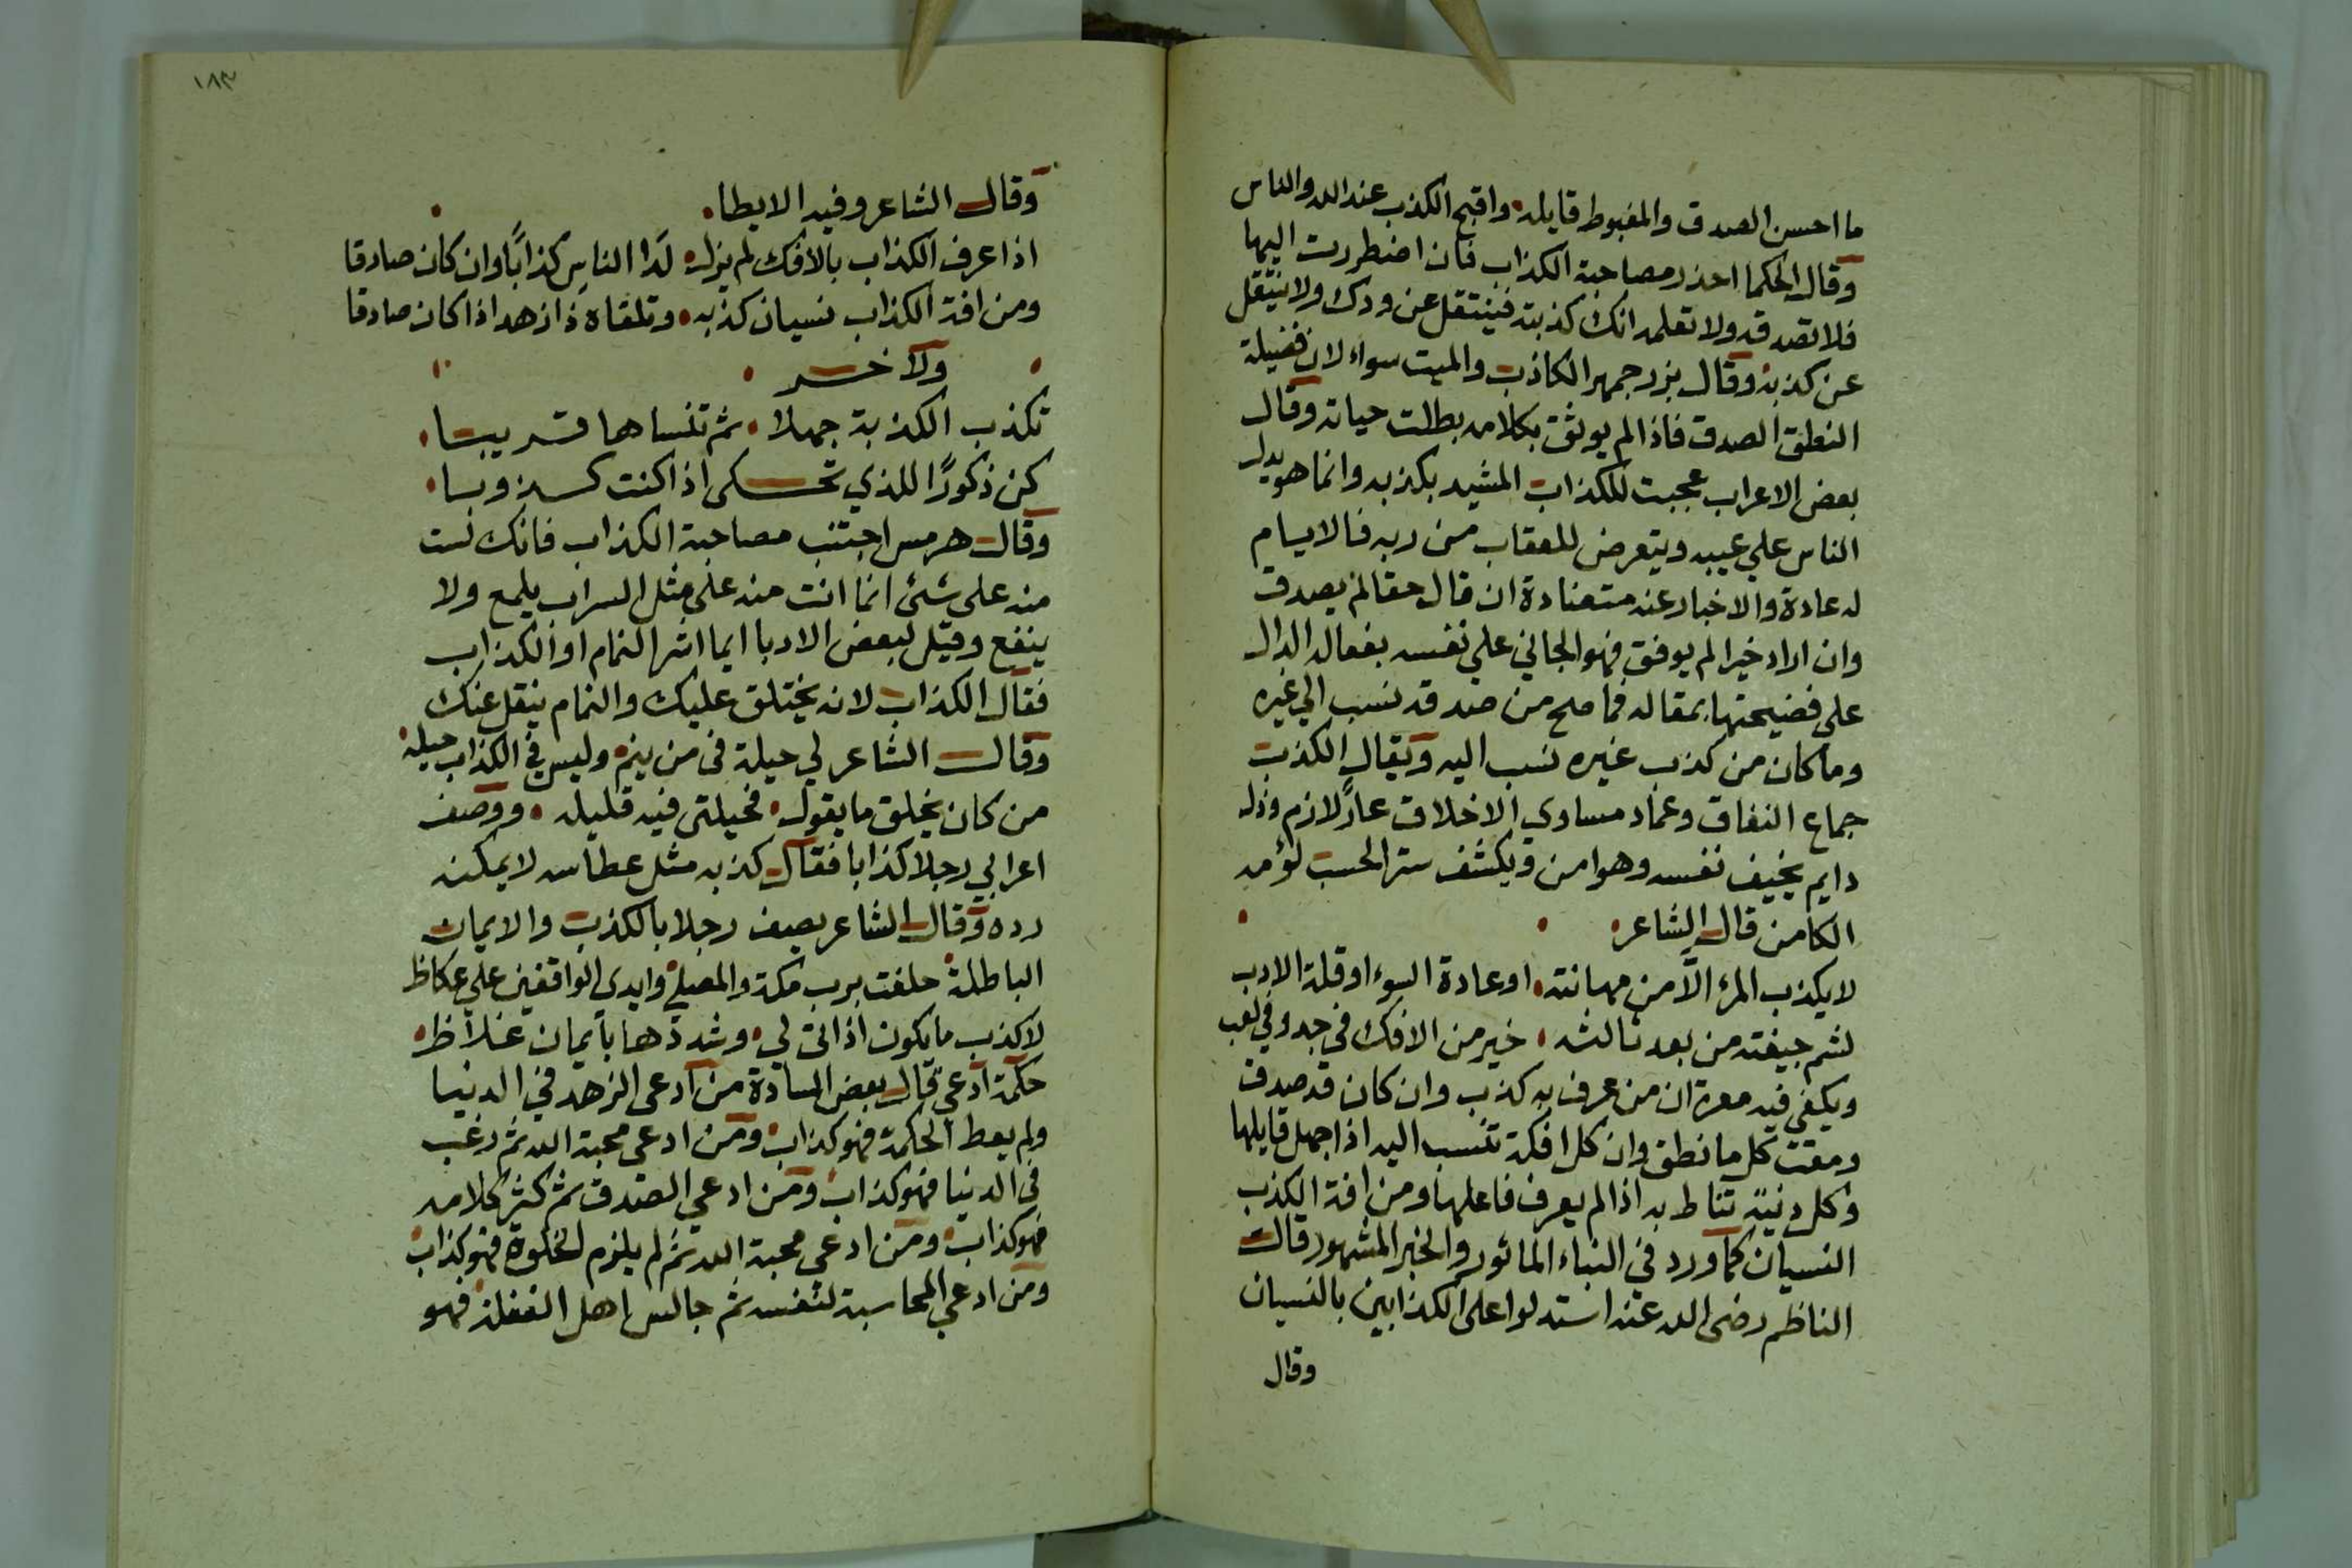 ما احسن الصدق والمغبوط قايله واقبح الكذب عند الله والناس
وقال الحكما احذر مصاحبة الكذاب فان اضطررت اليها
فلا تصدقه ولا تعلمه انك كذبته فينتقل عن ودك ولا ينتقل
عن كذبه وقال بزرجمهر الكاذب والميت سواء لان فضيلة
النطق الصدق فاذا لم يوثق بكلامه بطلت حياته وقال
بعض الاعراب عجبت للكذاب المشيد بكذبه وانما هو يدل
الناس علي عيبه ويتعرض للعقاب من ربه فالاسام
له عادة والاخبار عنه متضادة ان قال حقا لم يصدق
وان اراد خيرا لم يوفق فهو الجاني علي نفسه بفعاله الدال
علي فضيحتها بمقاله فما صح من صدقه نسب الي غيره
وما كان من كذب غيره نسب اليه ويقال الكذب
جماع النفاق وعماد مساوي الاخلاق عارٌ لازم وذل
دايم يخيف نفسه وهو امن ويكشف ستر الحسب لؤمه
الكامن قال الشاعر
لا يكذب المرء الّا من مهانته او عادة السوء او قلة الادب
لشم جيفة من بعد ثالثه خير من الافك في جد وفي لعب
ويكفي فيه معرة ان من عرف به كذب وان كان قد صدق
ومقت كل ما نطق وان كل افكة تنسب اليه اذا جهل قايلها
وكل دنية تناط به اذا لم يعرف فاعلها ومن افة الكذب
النسيان كما ورد في النباء الماثور والخبر المشهور قال
الناظم رضي الله عنه استدلوا علي الكذابين بالنسيان
وقال
١٨٣
وقال الشاعر وفيه الايطا
اذا عرف الكذاب بالافك لم يزل لدا الناس كذابًا وان كان صادقا
ومن افة الكذاب نسيان كذبه وتلقاه ذا زهد اذا كان صادقا
ولاخر
تكذب الكذبة جهلا ثم تنساها قريبا
كن ذكورًا للذي تحكي اذا كنت كذوبا
وقال هرمس اجتنب مصاحبة الكذاب فانك لست
منه علي شئ انما انت منه علي مثل السراب يلمع ولا
ينفع وقيل لبعض الادبا ايما اشر النمام او الكذاب
فقال الكذاب لانه يختلق عليك والنمام ينقل عنك
وقال الشاعر لي حيلة في من ينم وليس في الكذاب حيله
من كان يخلق ما يقول فحيلتي فيه قليله ووصف
اعرابي رجلا كذابا فقال كذبه مثل عطاسه لا يمكنه
رده وقال الشاعر يصف رجلا بالكذب والايمان
الباطلة حلفت برب مكة والمصلي وايدي الواقفين علي عكاظ
لاكذب ما يكون اذا الي لي وشددها بايمان غلاظ
حكمة ادعي قال بعض السادة من ادعي الزهد في الدنيا
ولم يعط الحكمة فهو كذاب ومن ادعي محبة الله ثم رغب
في الدنيا فهو كذاب ومن ادعي الصدق ثم كثر كلامه
فهو كذاب ومن ادعي محبة الله ثم لم يلزم الخلوة فهو كذاب
ومن ادعي المحاسبة لنفسه ثم جالس اهل الغفلة فهو